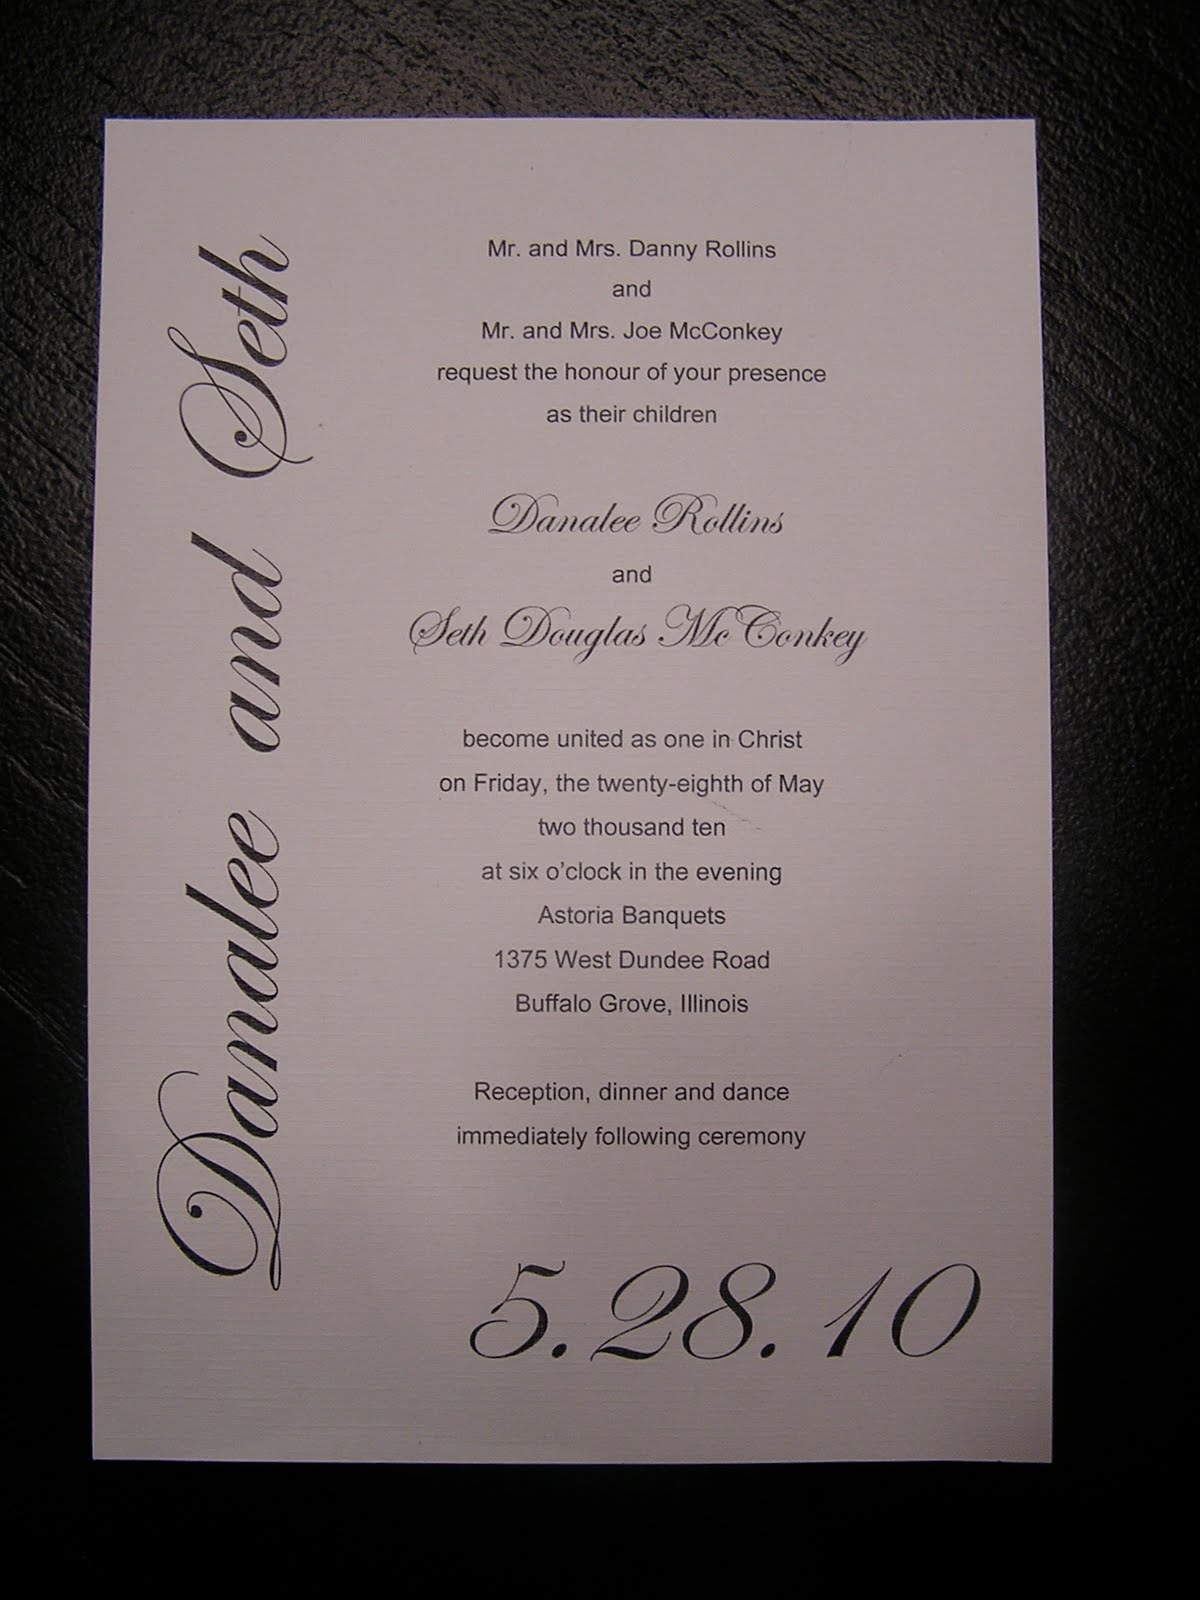 Danalee and Seth
Mr. and Mrs. Danny Rollins
and
Mr. and Mrs. Joe McConkey
request the honour of your presence
as their children
Danalee Rollins
and
Seth Douglas McConkey
become united as one in Christ
on Friday, the twenty-eighth of May
two thousand ten
at six o’clock in the evening
Astoria Banquets
1375 West Dundee Road
Buffalo Grove, Illinois
Reception, dinner and dance
immediately following ceremony
5.28.10